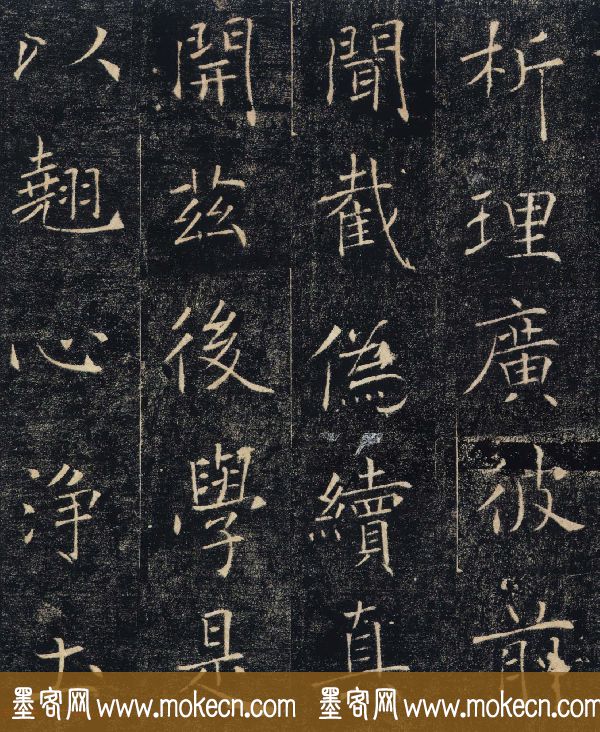 析理廣彼前
聞截偽續真
開茲後學是
以翹心浄土
墨客网 www.mokecn.com 墨客网 www.mokecn.com